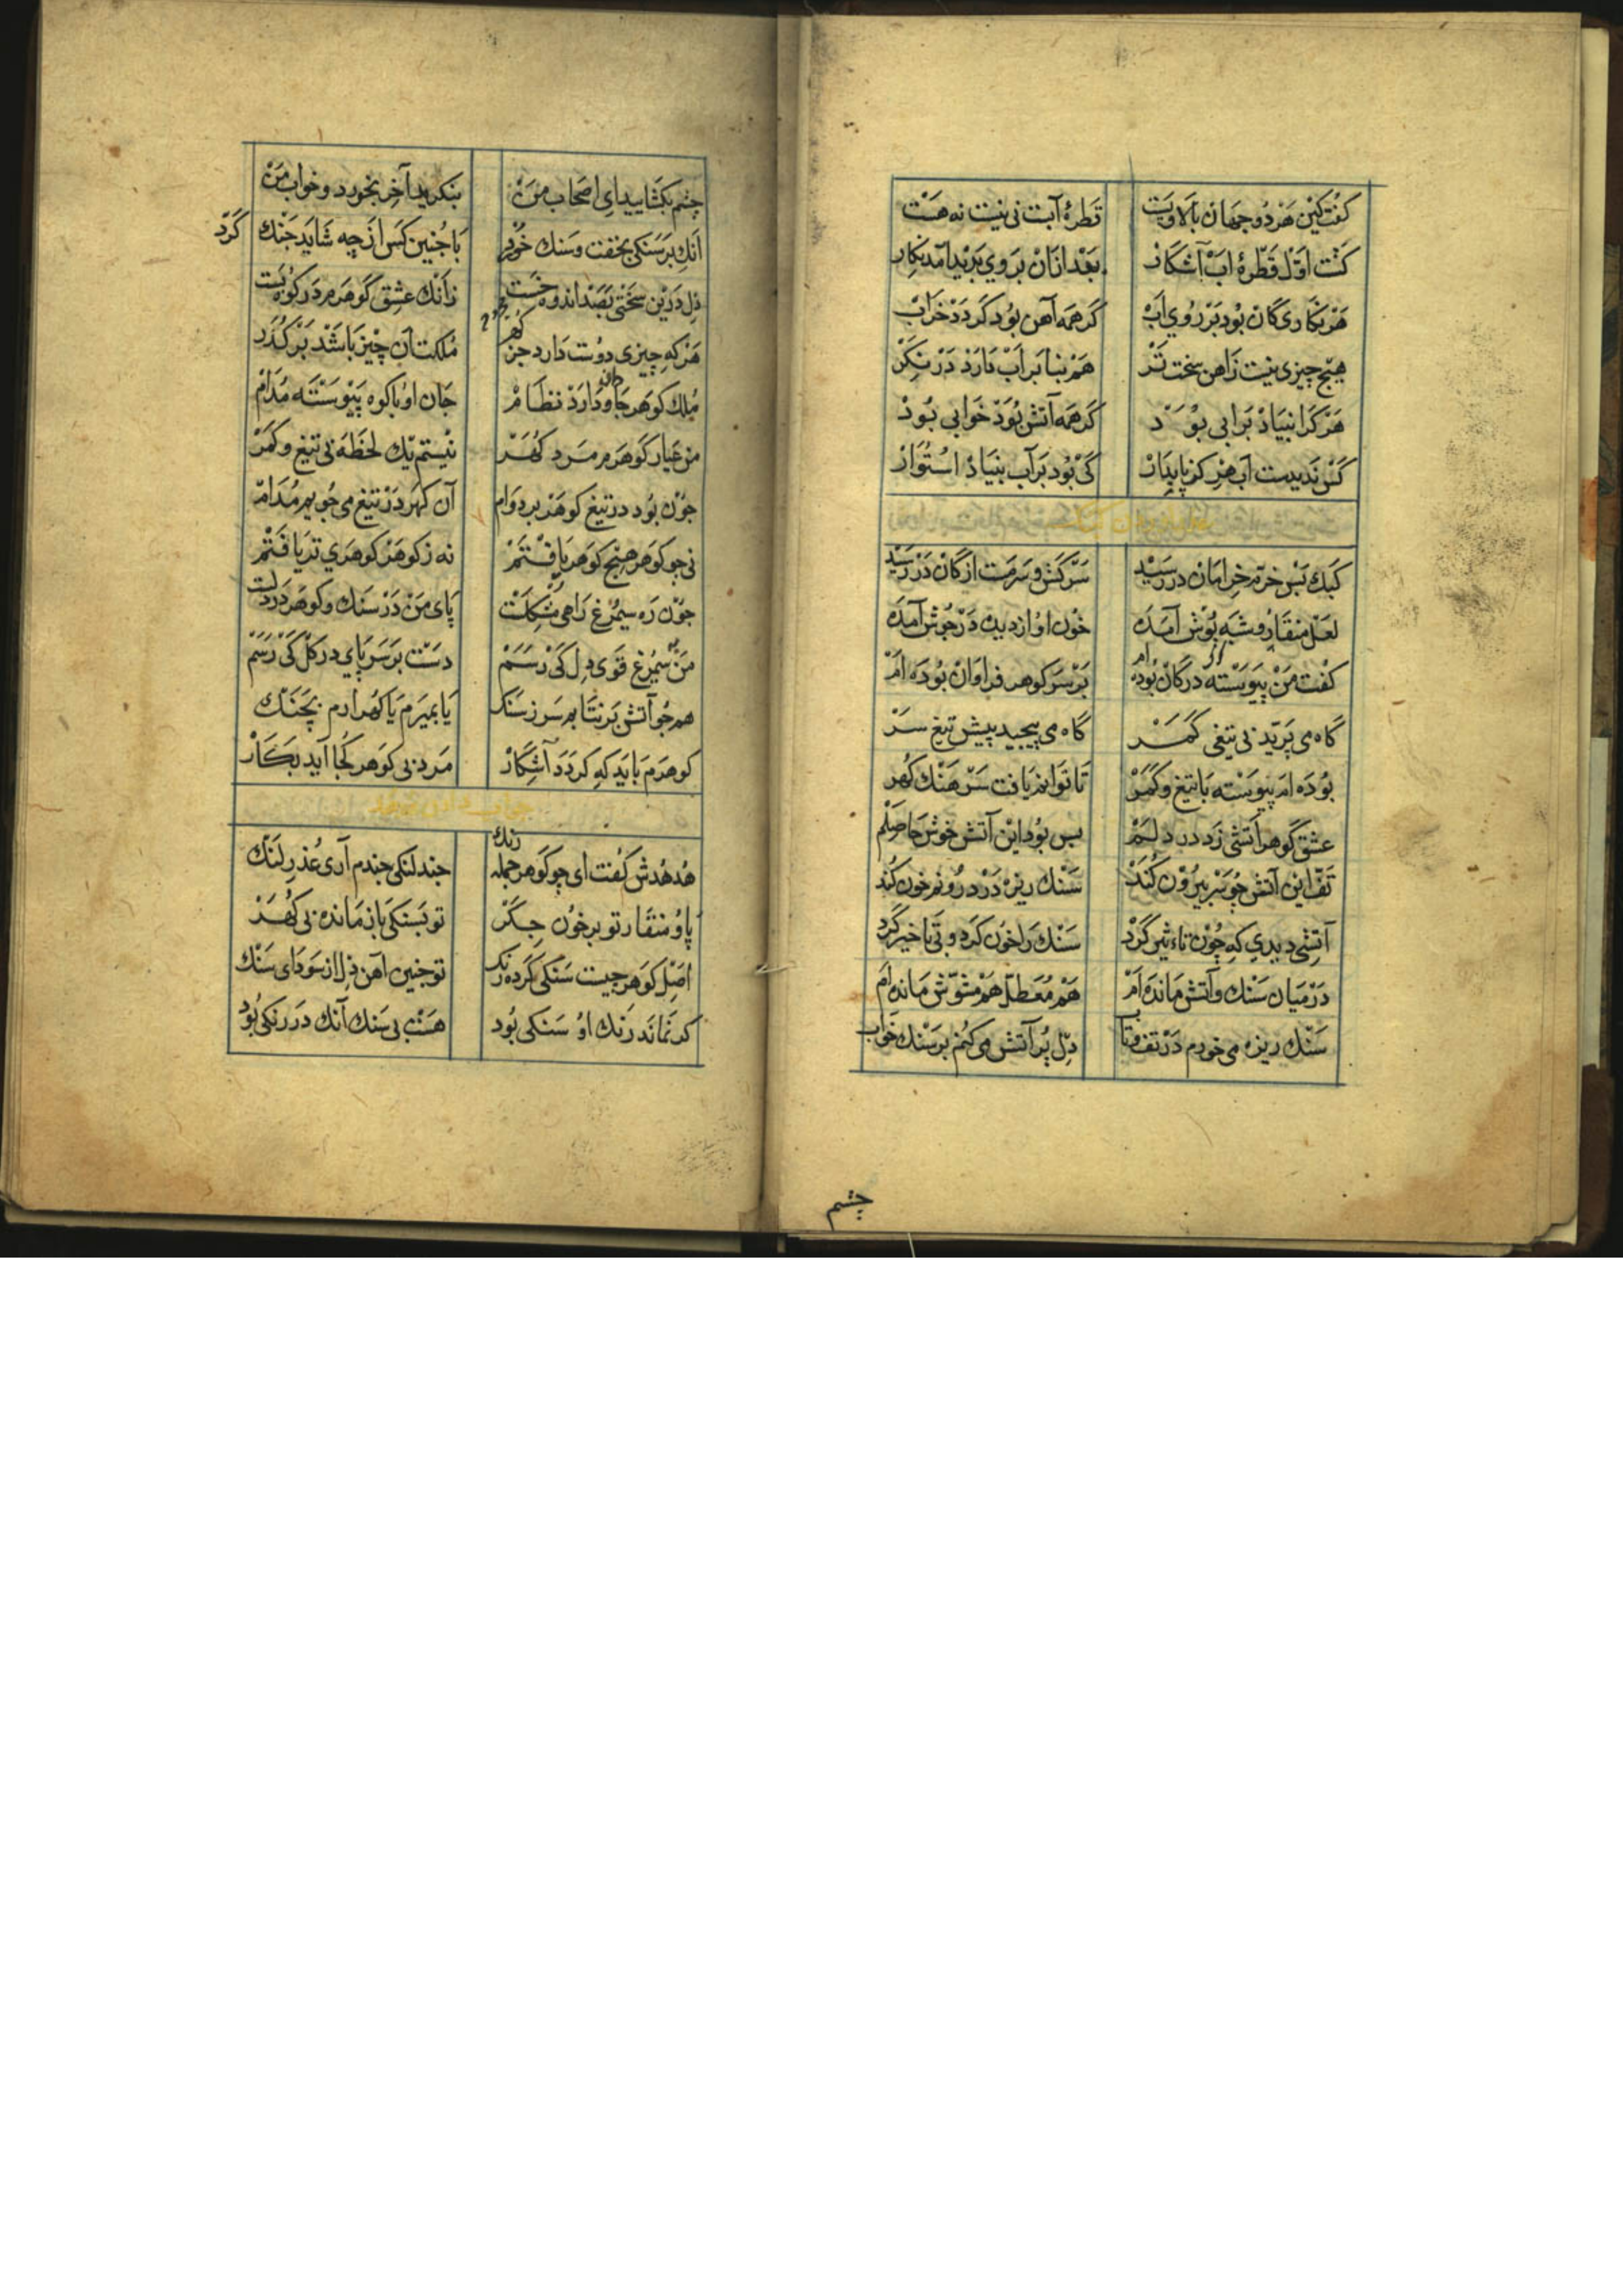 کفت کین هر دو جهان بالا و پست قطرهٔ آبت نی نیست نه هست
کشت اوّل قطرهٔ اب آشکار بعد ازان بروی پرید آمد نکار
هر نکاری کان بود بر روی اب کر همه آهن بود کردد خراب
هیچ چیزی نیست زاهن سخت تر هم بنا بر اب دارد در نکر
هر کرا بنیاد بر ابی بود کر همه آتش بود خوابی بود
کس ندیدست اب هرکز پایدار کی بود بر آب بنیاد استوار
کبک بس خرم خرامان در رسید سرکش و سرمست از کان در رسید
لعل منقار وشیه پوش آمده خون او از دیده در جوش آمده
کفت من پیوسته در کان بوده ام بر سر کوهر فراوان بوده ام
کاه می پرید بی تیغی کمر کاه می پیجید پیش تیغ سر
بوده ام پیوسته با تیغ و کمر تا توانم یافت سرهنک کهر
عشق کوهر آتشی زد در دلم بس بود این آتش خوش حاصلم
تف این آتش چو سر بیرون کند سنک ریزه در درونم خون کند
آتشی دیدی که چون تاءثیر کرد سنک را خون کرد و بی تاخیر کرد
در میان سنک و آتش مانده ام هم معطل هم مشوش مانده ام
سنک ریزه می خورم در تف و تاب دل پر آتش می کنم بر سنک خواب
چشم
چشم بکشایید ای اصحاب من بنکرید آخر بخورد و خواب من
آنک بر سنکی بخفت و سنک خورد با جنین کس از چه شاید جنک کرد
دل درین سختی بصد اندوه خست زانک عشق کوهرم در کوه بست
هر که چیزی دوست دارد جز کهر ملکت آن چیز باشد بر کذر
ملک کوهر جاودان دارد نظام جان او با کوه پیوسته مدام
من عیار کوهرم مرد کهر نیستم یک لحظه بی تیغ و کمر
جون بود در تیغ کوهر بر دوام آن کهر در تیغ می جویم مدام
نی جو کوهر هیج کوهر یافتم نه ز کوهر کوهری تر یافتم
جون ره سیمرغ راهی مشکلست پای من در سنک و کوهر در دلست
من بسیمرغ قوی دل کی رسم دست بر سر پای در کل کی رسم
همجو آتش برنتابم سر ز سنک یا بمیرم یا کهر ارم بچنک
کوهرم باید که کردد آشکار مرد بی کوهر کجا آید بکار
هدهدش کفت ای چو کوهر جمله رنک جند لنکی جندم آری عذر لنک
پا و منقار تو بر خون جکر تو بسنکی باز مانده بی کهر
اصل کوهر جیست سنکی کرده رنک تو جنین آهن دل از سودای سنک
کر نماند رنک او سنکی بود هست بی سنک آنک در رنکی بود